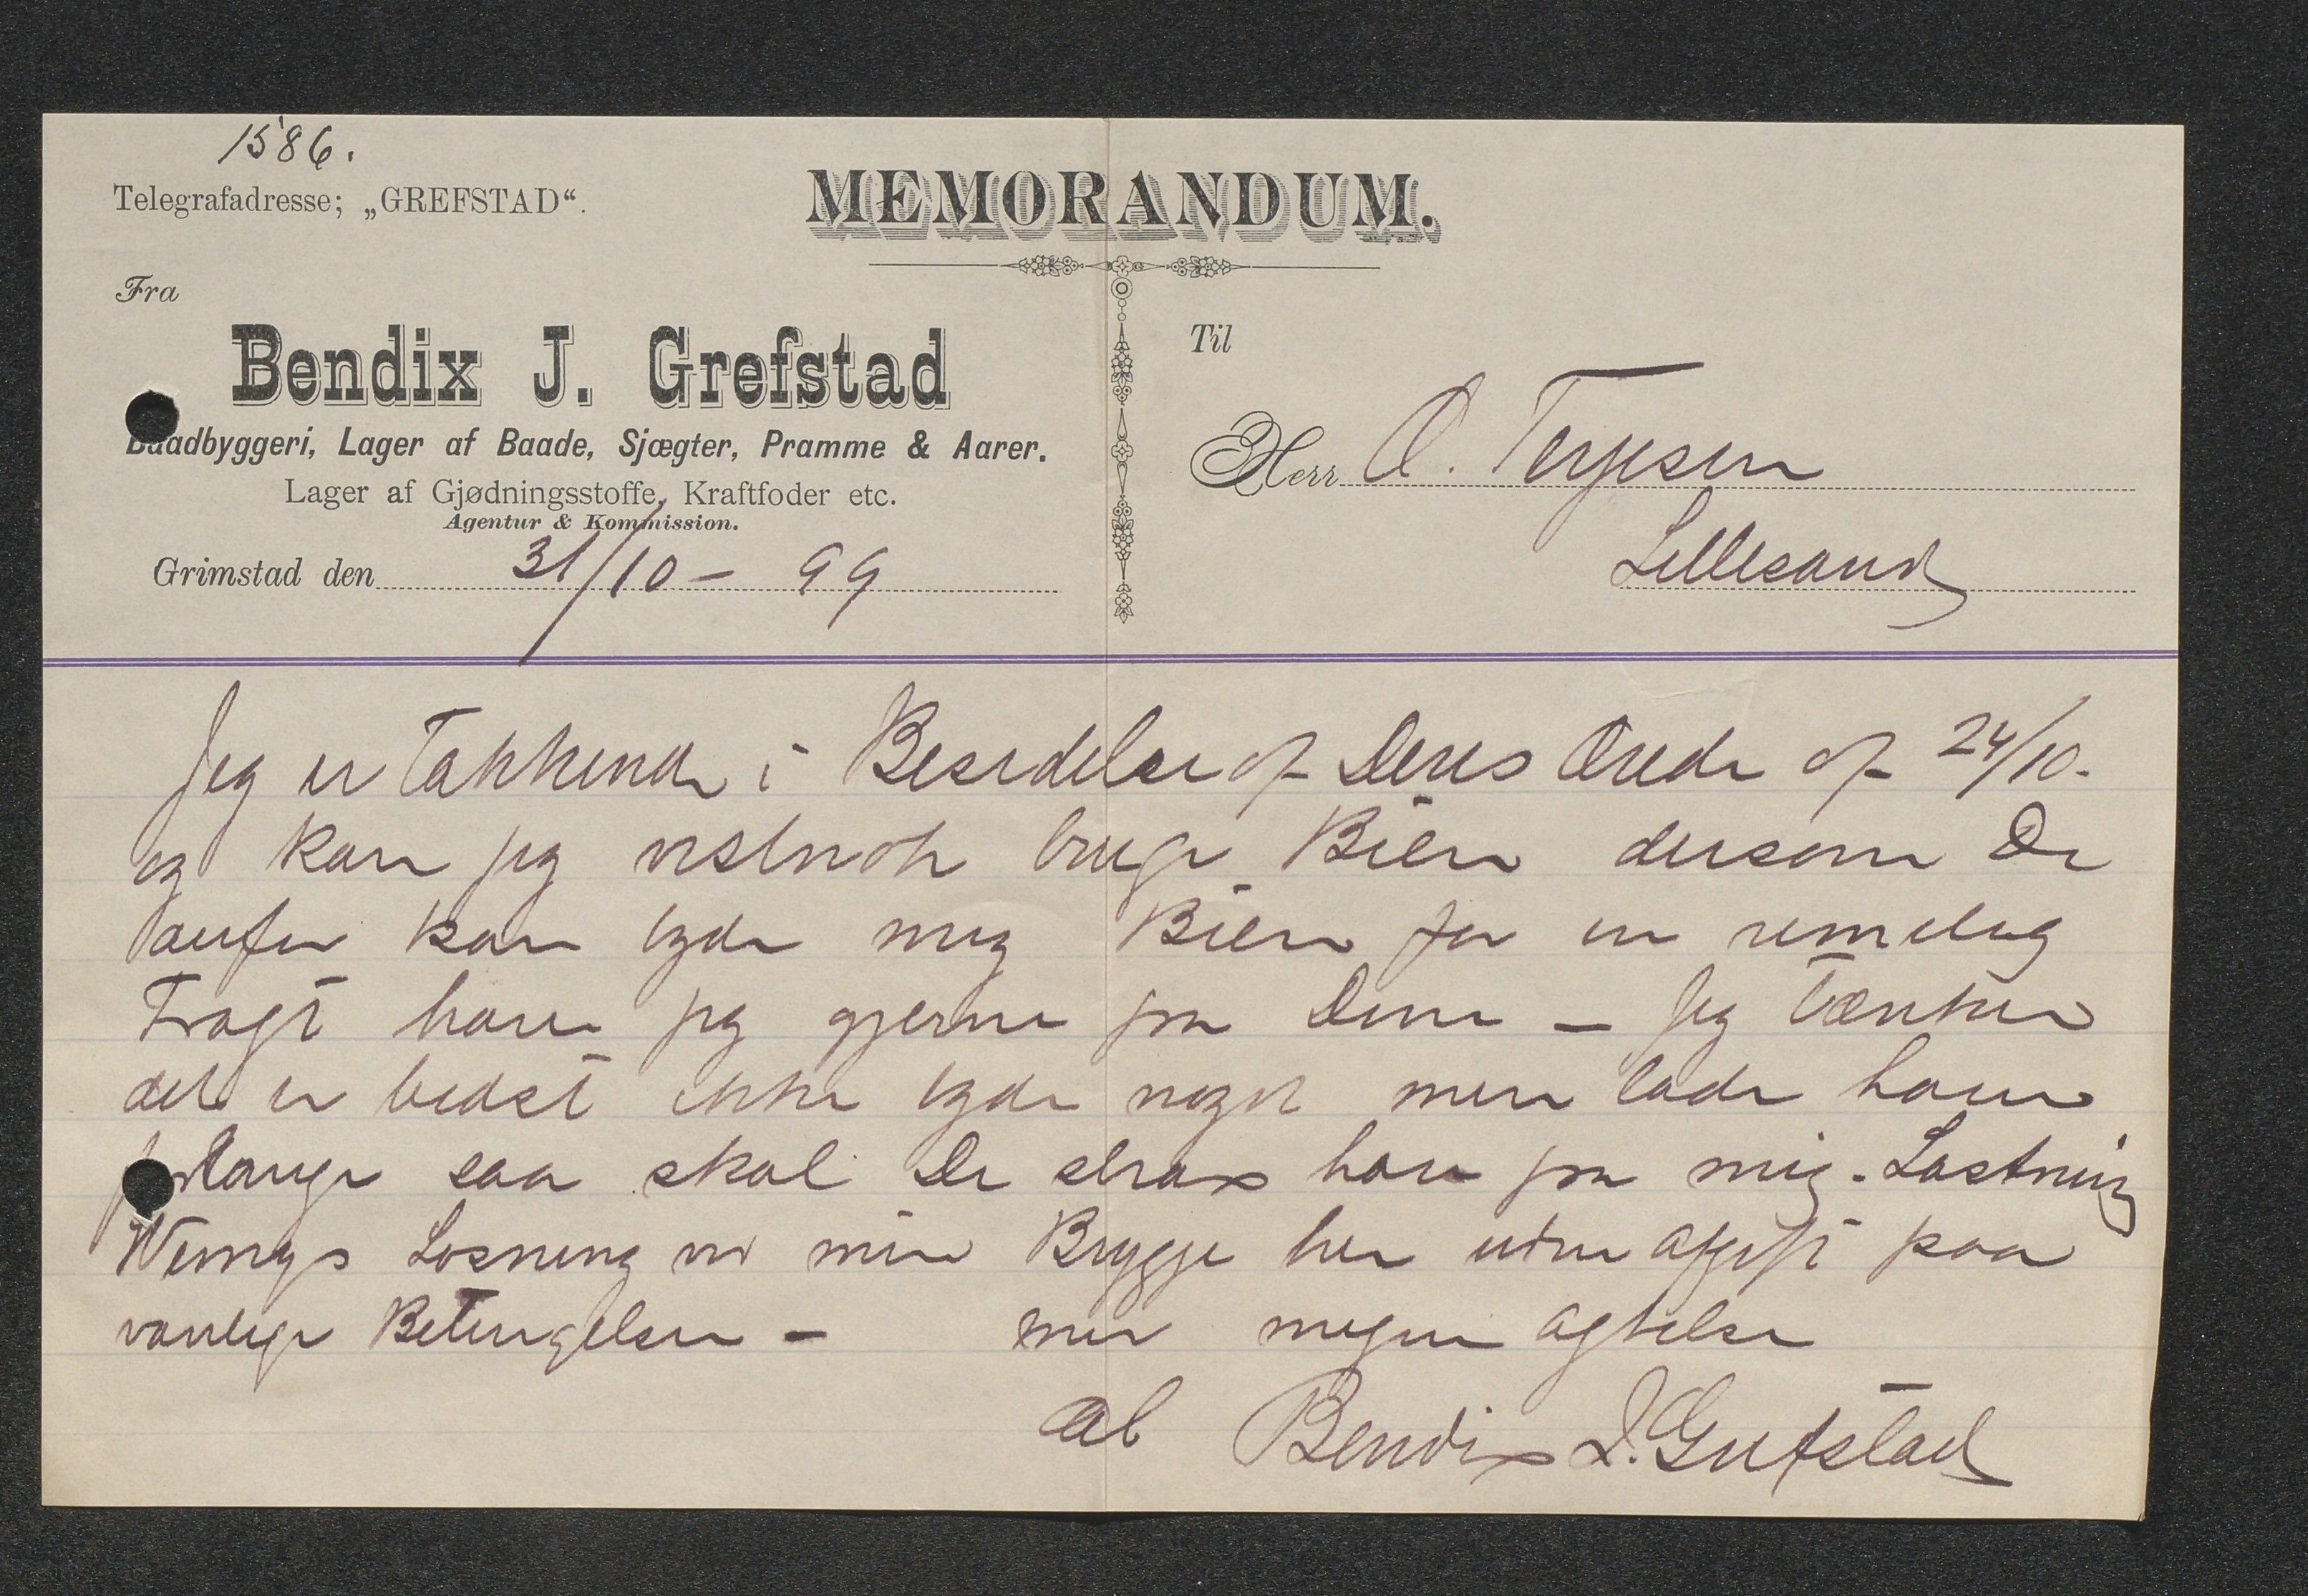 1586.
Telegrafadresse; „GREFSTAD“.
MEMORANDUM.
Fra
Bendix J. Grefstad
Baadbyggeri, Lager af Baade, Sjægter, Pramme & Aarer.
Lager af Gjødningsstoffe, Kraftfoder etc.
Agentur & Kommission.
Grimstad den 31/10 – 99
Til
Herr O. Terjesen
Lillesand
Jeg er Takkende i Besidelse af Deres Ærede af 24/10.
og kan jeg vistnok bruge dersom De
kan byde mig for en rimelig
Fragt hører jeg gjerne fra Dem – Jeg Tænker
det er bedst ikke byde noget men lade ham
forlange saa skal De strax høre fra mig. Lastning
Wemys Losning ved min Brygge her uden afgift paa
vanlige Betingelser – med megen agtelse
Bendix J. Grefstad